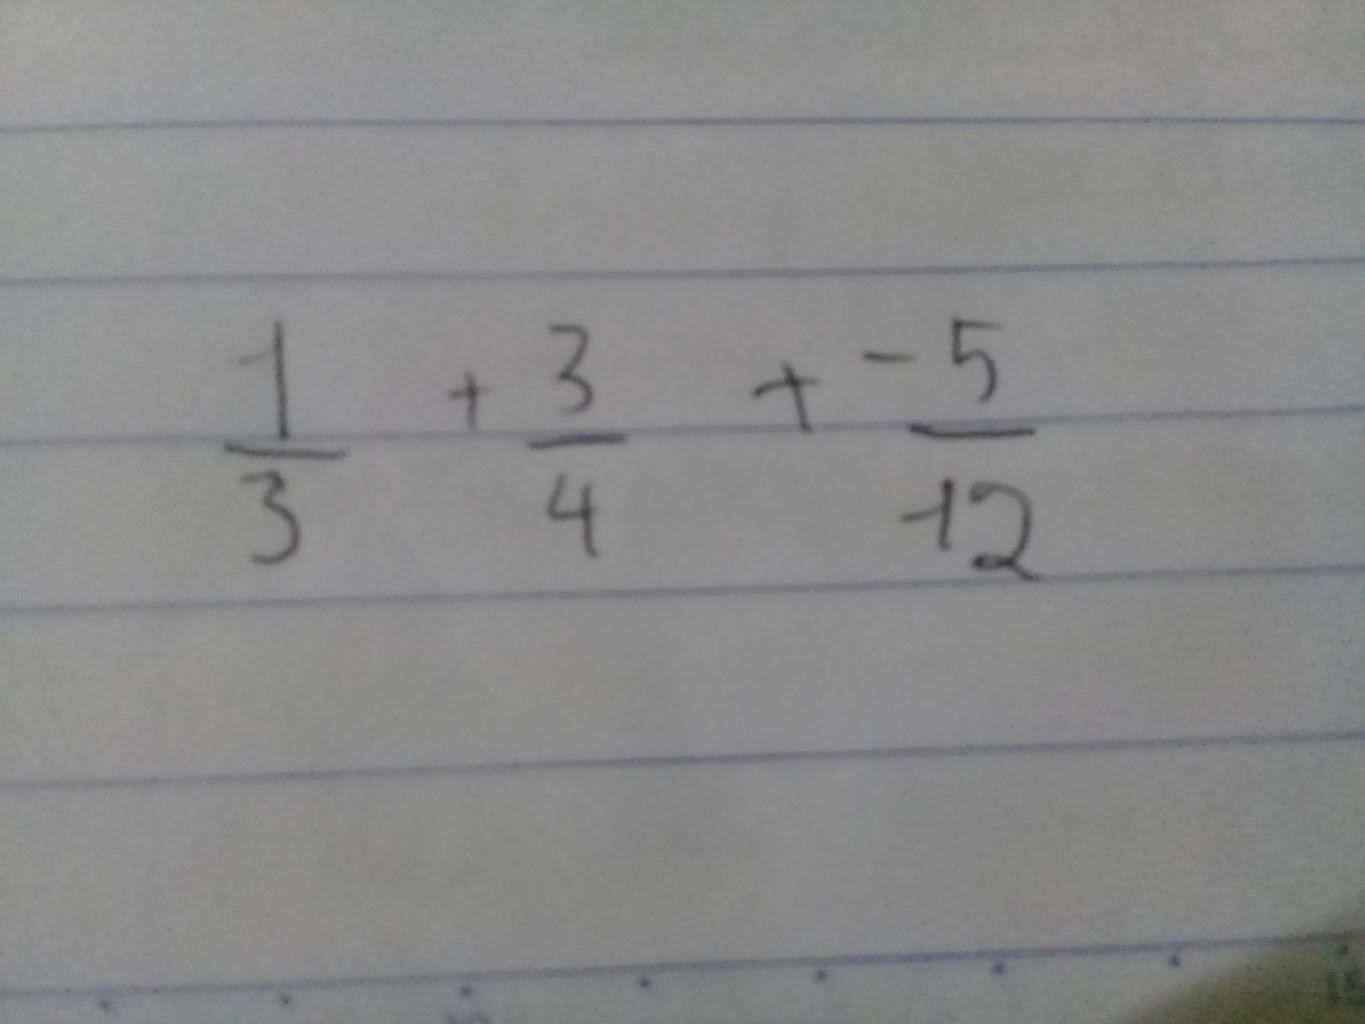 1/3 + 3/4 + -5/12